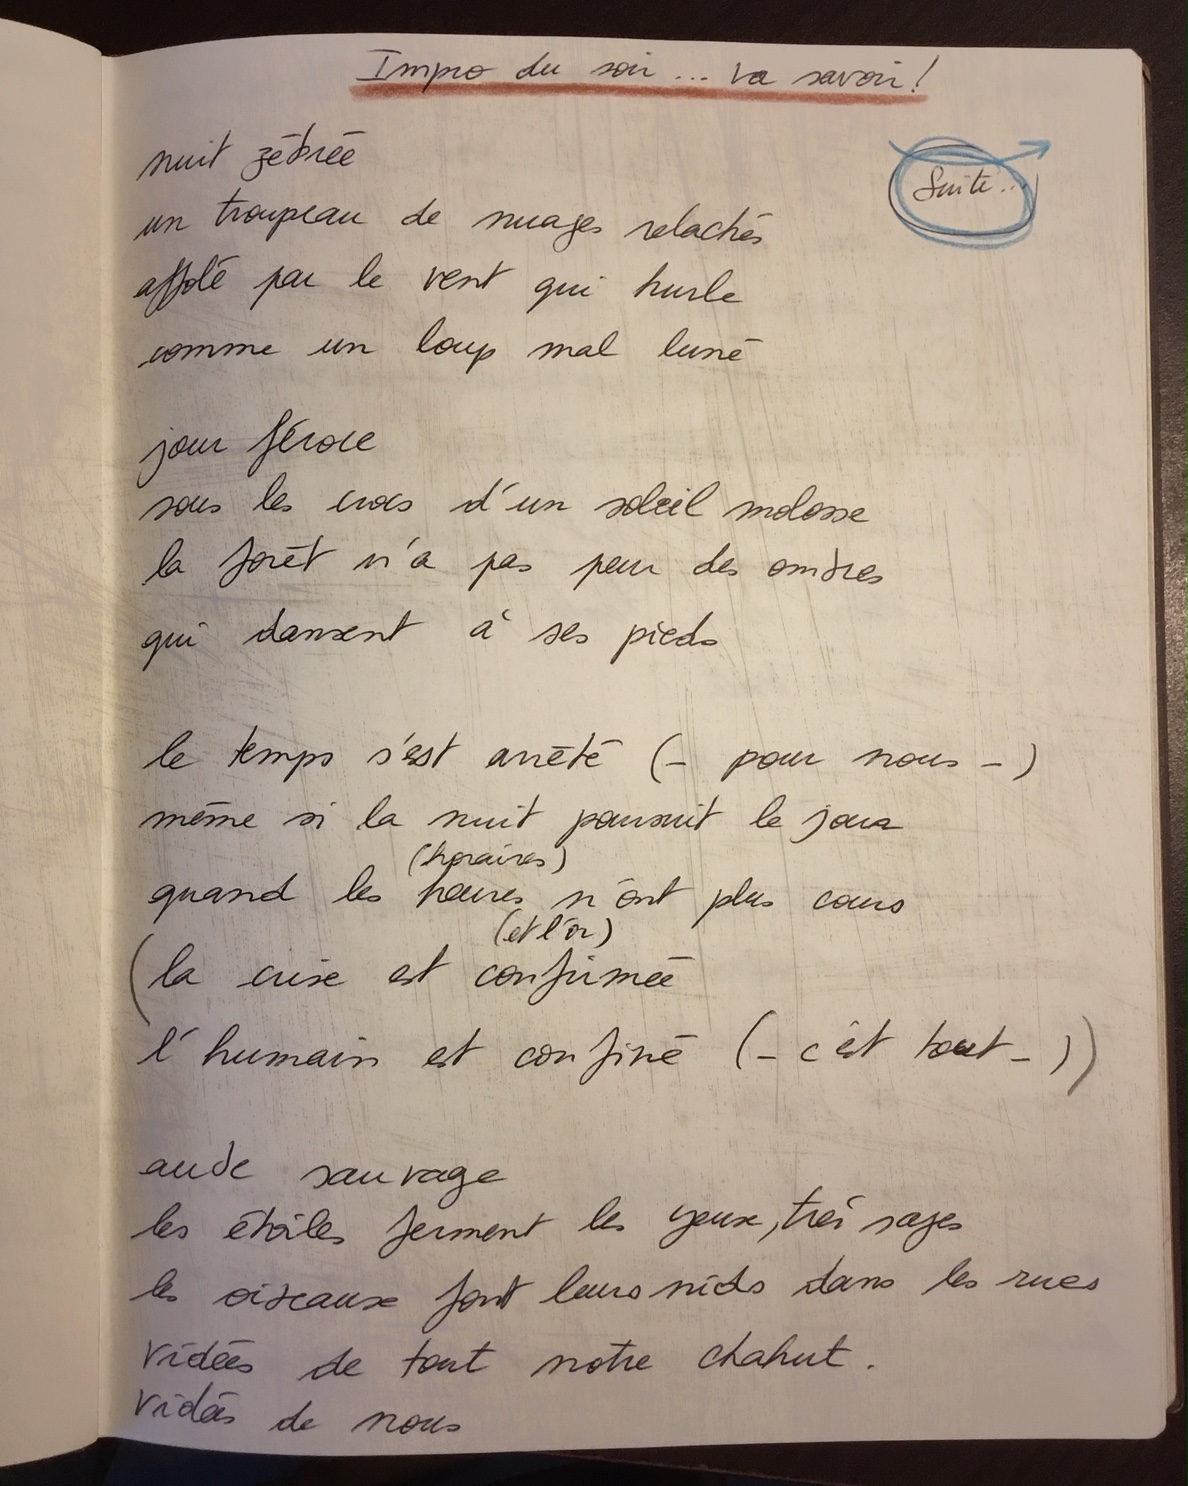 Impro du soir... va savoir!
Suite...
nuit zébrée
un troupeau de nuages relachés
affolé par le vent qui hurle
comme un loup mal luné
jour féroce
sous les crocs d'un soleil molosse
la forêt n'a pas peur des ombres
qui dansent à ses pieds
le temps s'est arrêté (- pour nous -)
même si la nuit poursuit le jour
(horaires)
quand les heures n'ont plus cours
(et l'or)
(la crise est confirmée
l'humain est confiné (- c'est tout -))
aube sauvage
les étoiles ferment les yeux, très sages
les oiseaux font leurs nids dans les rues
vidées de tout notre chahut.
vidées de nous